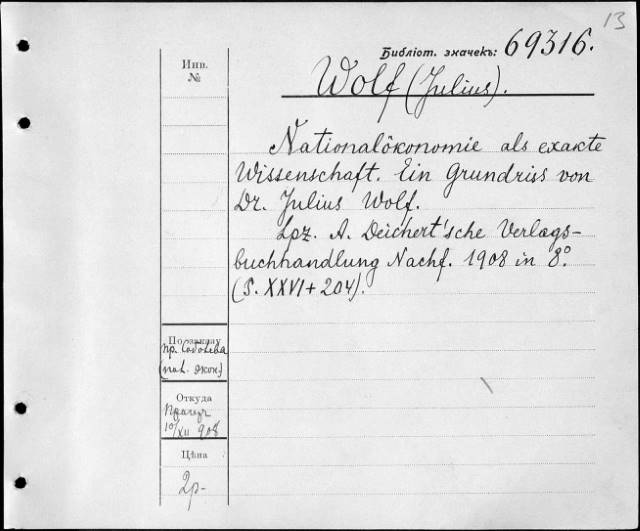 13
Библіот. значекъ: 69316.
Инв.
№
Wolf (Julius).
Nationalökonomie als exakte
Wissenschaft. Ein Grundriss von
Dr. Julius Wolf.
Lpz. A. Deichert'sche Verlags-
buchhandlung Nachf. 1908 in 8°.
(S. XXVI + 204).
По заказу
пр. Соболева
экон.)
Откуда
10/XII 908
Цѣна
2р-